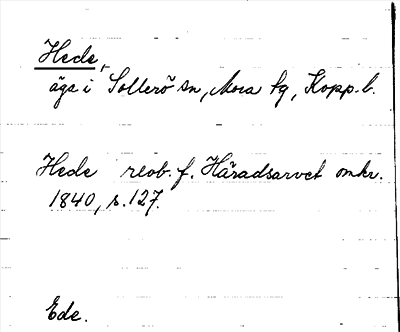 Hede,
äga i Sollerö sn, Mora tg, Kopp. l.
Hede reob. f. Häradsarvet omkr.
1840, s. 127.
Ede.